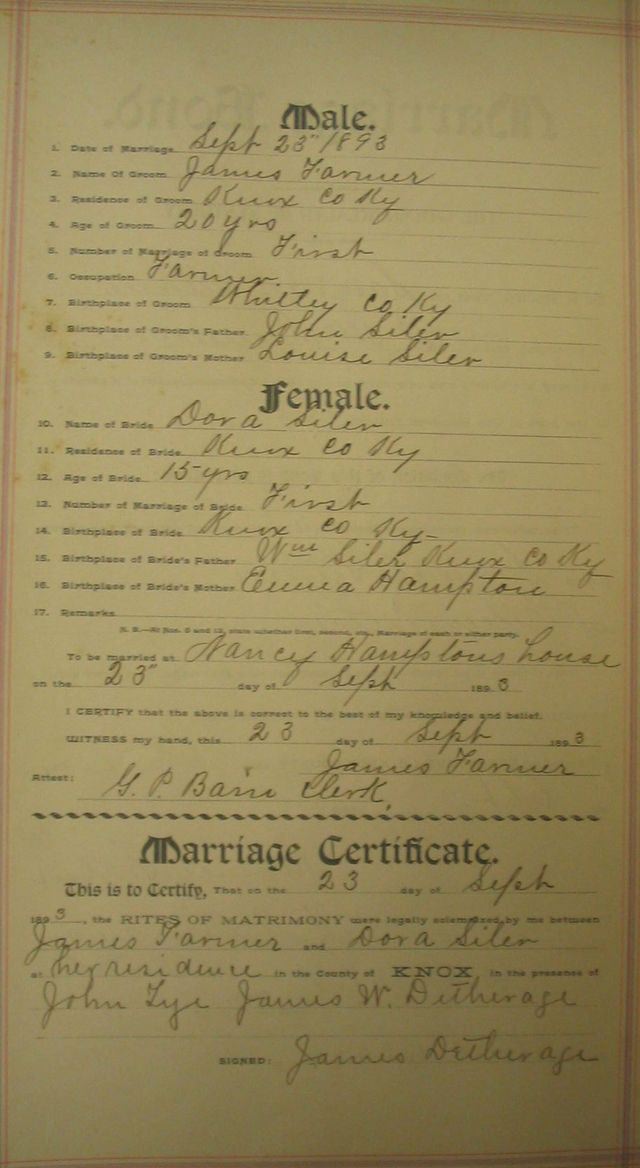 Male.
1. Date of Marriage Sept 23" 1893
2. Name Of Groom James Farmer
3. Residence of Groom Knox Co Ky
4. Age of Groom 20 yrs
5. Number of Marriage of Groom First
6. Occupation Farmer
7. Birthplace of Groom Whitley Co Ky
8. Birthplace of Groom's Father John Siler
9. Birthplace of Groom's Mother Louise Siler
Female.
10. Name of Bride Dora Siler
11. Residence of Bride Knox Co Ky
12. Age of Bride 15 yrs
13. Number of Marriage of Bride First
14. Birthplace of Bride Knox Co Ky
15. Birthplace of Bride's Father Wm Siler Knox Co Ky
16. Birthplace of Bride's Mother Emma Hampton
17. Remarks
N. B.—At Nos. 5 and 13, state whether first, second, etc., Marriage of each or either party.
To be married at Nancy Hamptons house
on the 23" day of Sept 1893
I CERTIFY that the above is correct to the best of my knowledge and belief.
WITNESS my hand, this 23 day of Sept 1893
James Farmer
Attest: G. P. Bain Clerk,
Marriage Certificate.
This is to Certify, That on the 23 day of Sept
1893, the RITES OF MATRIMONY were legally solemnized by me between
James Farmer and Dora Siler
at her residence in the County of KNOX, in the presence of
John Tye James W. Detherage
SIGNED: James Detherage